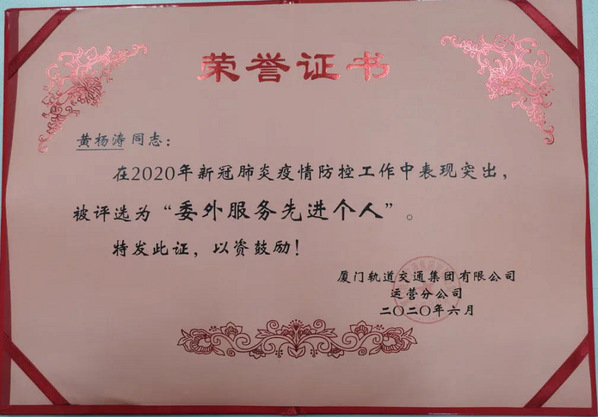 荣誉证书
黄杨涛同志：
在2020年新冠肺炎疫情防控工作中表现突出，
被评选为“委外服务先进个人”。
特发此证，以资鼓励！
厦门轨道交通集团有限公司
运营分公司
二〇二〇年六月